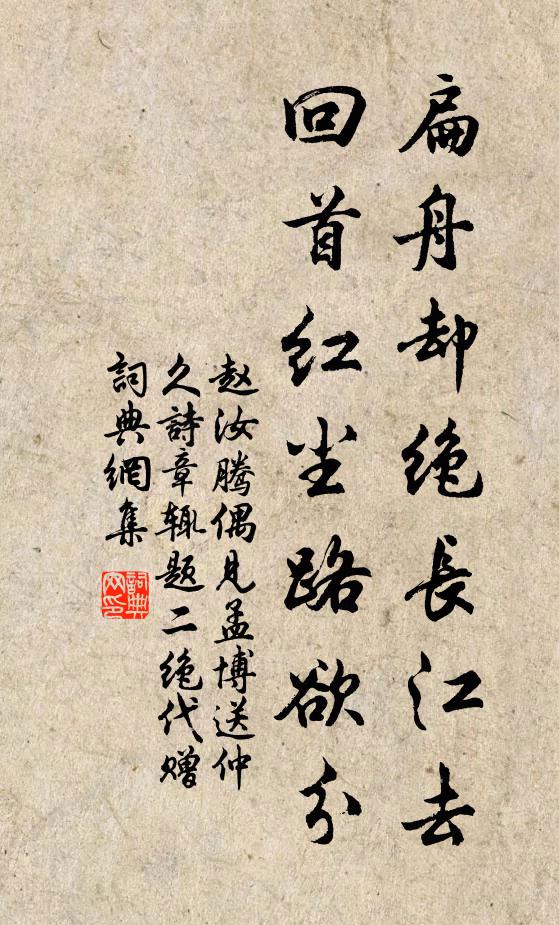 扁舟却绝長江去
回首红尘路欲分
赵汝腾偶見孟博送仲
久詩章辄题二绝代赠
詞典網集
詞典网印